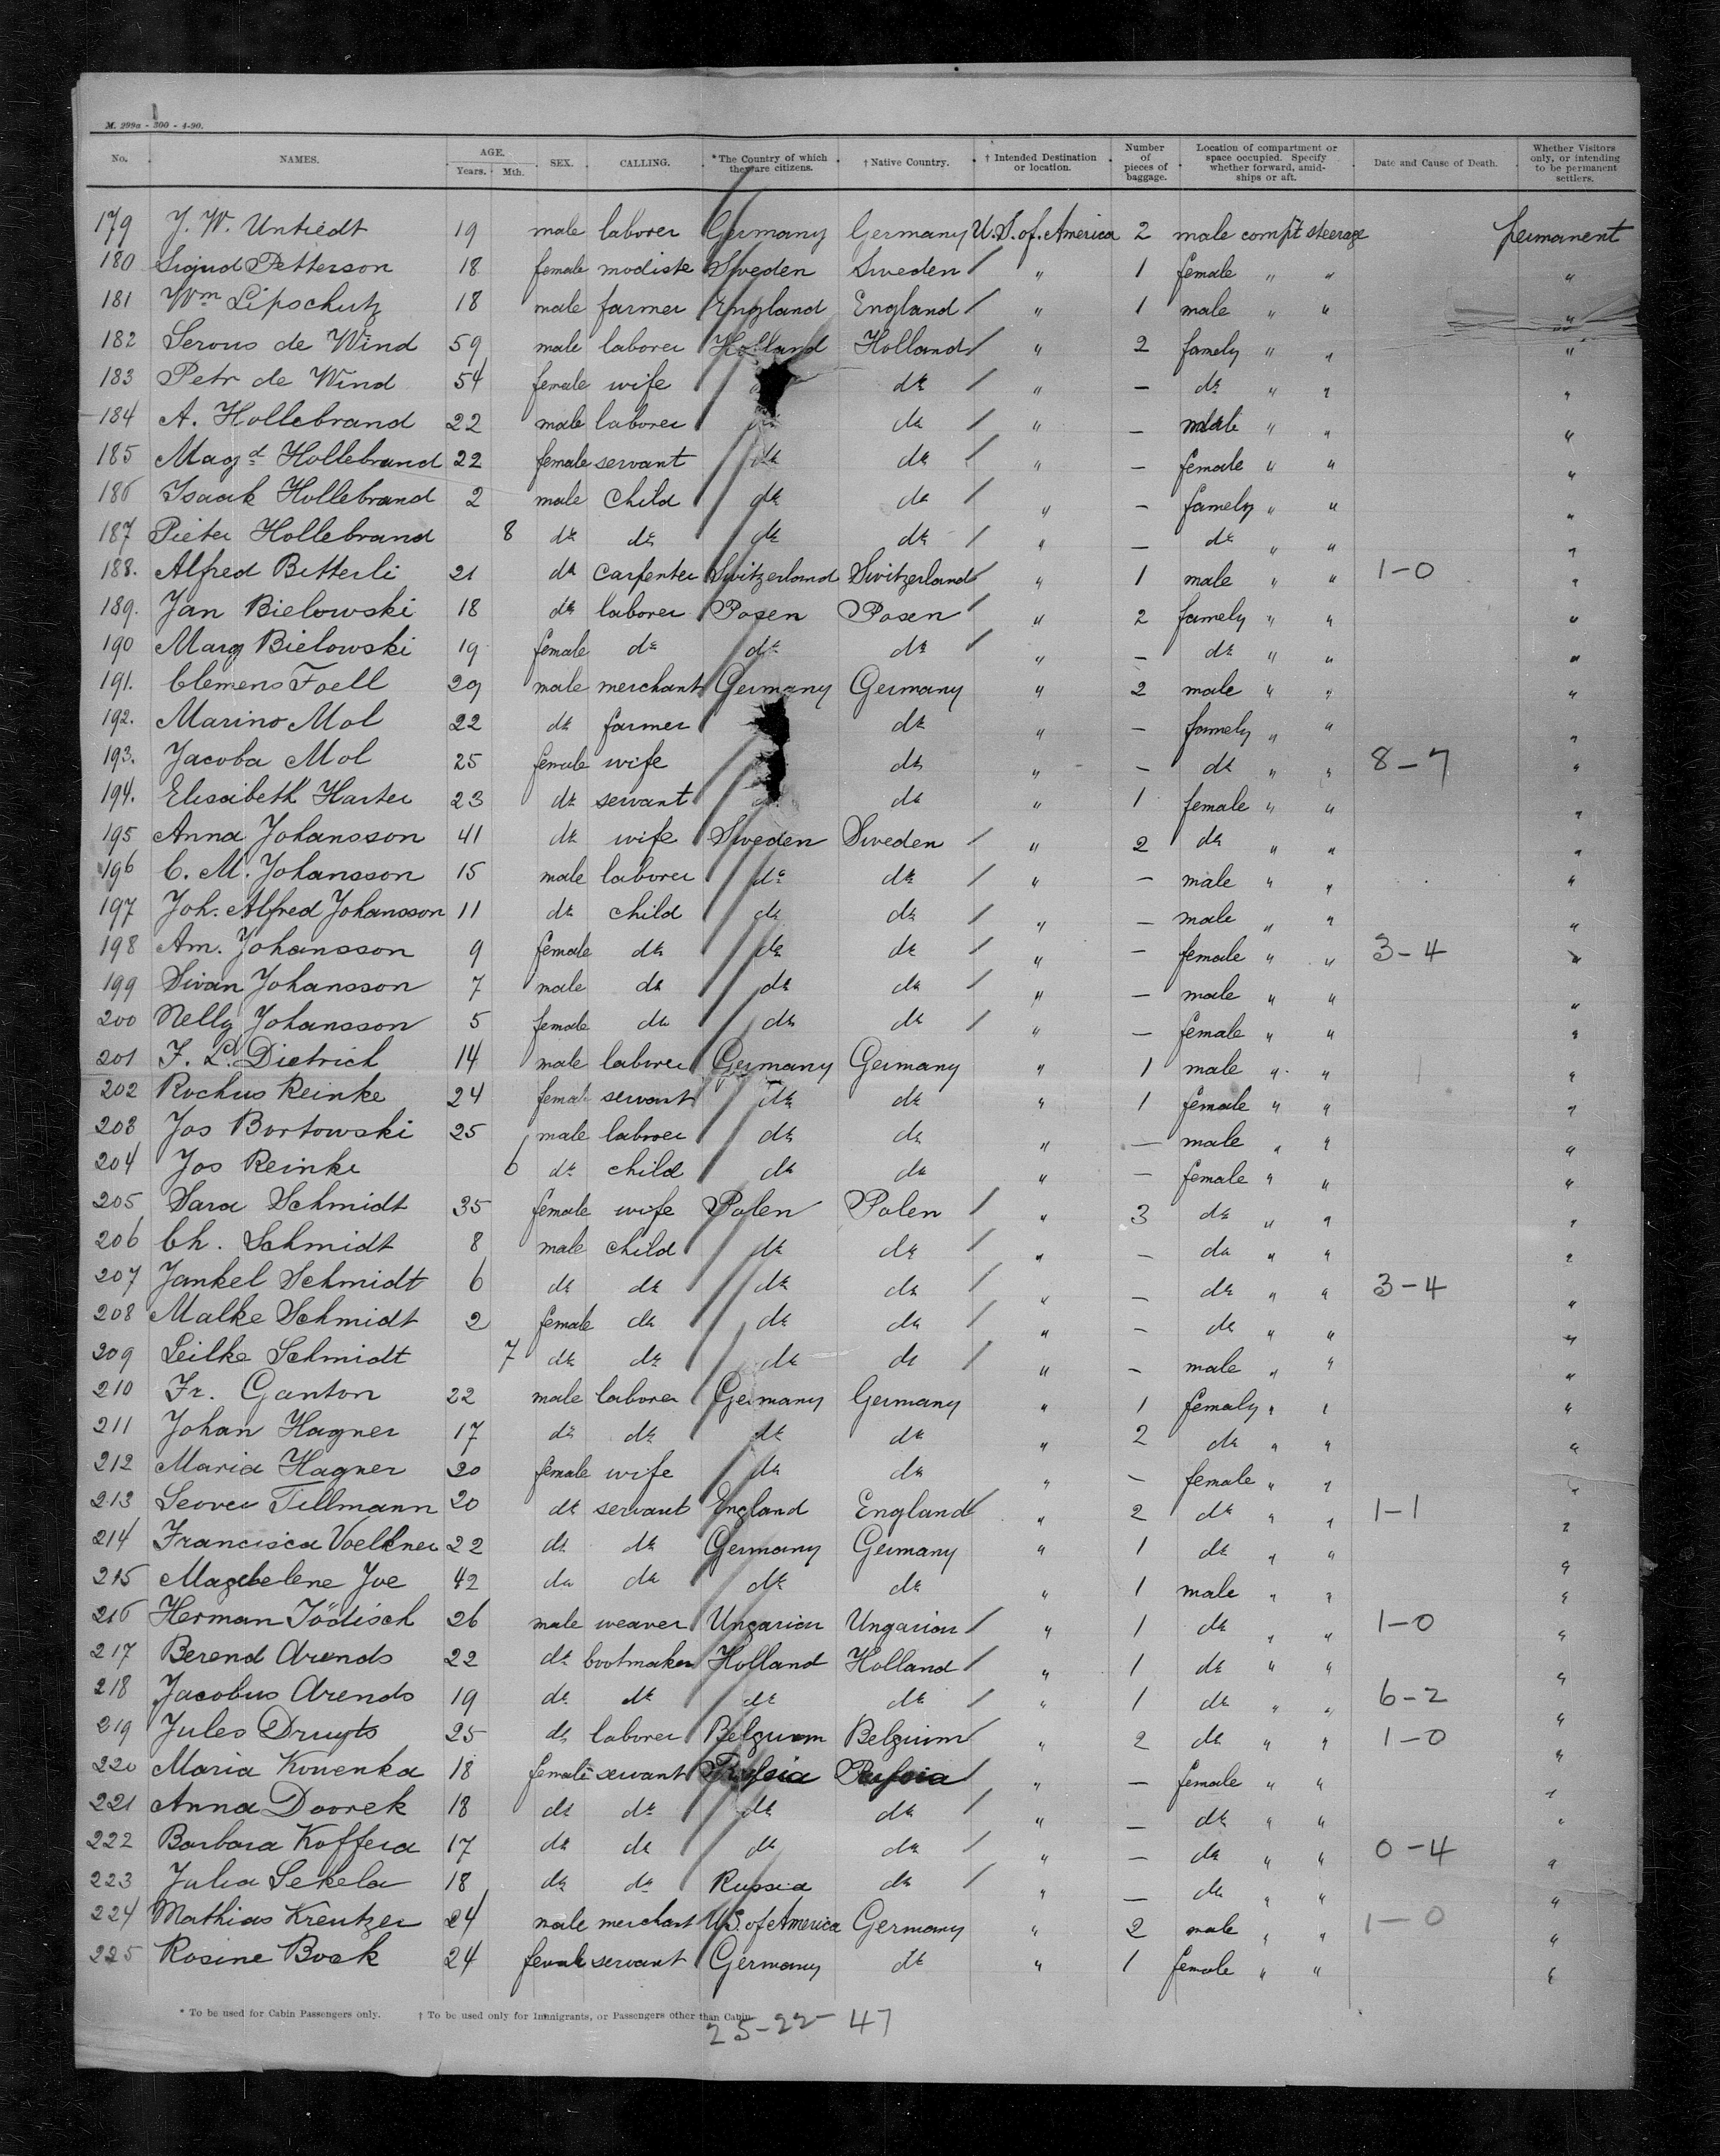 M. 299a - 300 - 4-90.
No. NAMES. AGE. Years. Mth. SEX. CALLING. *The Country of which they are citizens. † Native Country. † Intended Destination or location. Number of pieces of baggage. Location of compartment or space occupied. Specify whether forward, amidships or aft. Date and Cause of Death. Whether Visitors only, or intending to be permanent settlers.
179 J. W. Untiedt 19 male laborer Germany Germany U.S. of. America 2 male compt steerage permanent
180 Sigud Petterson 18 female modiste Sweden Sweden / " 1 female " " "
181 Wm Lipschutz 18 male farmer England England / " 1 male " " "
182 Serous de Wind 59 male laborer Holland Holland / " 2 famely " " "
183 Petr de Wind 54 female wife do / " — do " " "
184 A. Hollebrand 22 male laborer do / " — male " " "
185 Magd Hollebrand 22 female servant do do / " — female " " "
186 Isaak Hollebrand 2 male child do do / " — famely " " "
187 Pieter Hollebrand 8 do do do do / " — do " " "
188. Alfred Bitterli 21 do carpenter Switzerland Switzerland / " 1 male " " 1-0 "
189. Jan Bielowski 18 do laborer Posen Posen / " 2 famely " " "
190 Marg Bielowski 19 female do do do / " — do " " "
191. Clemens Foell 29 male merchant Germany Germany " 2 male " " "
192. Marino Mol 22 do farmer do " — famely " " "
193. Jacoba Mol 25 female wife do " — do " " 8-7 "
194. Elisabeth Harter 23 do servant do " 1 female " " "
195 Anna Johansson 41 do wife Sweden Sweden / " 2 do " " "
196 C. M. Johansson 15 male laborer do do / " — male " " "
197 Joh. Alfred Johansson 11 do child do do / " — male " " "
198 Am. Johansson 9 female do do do / " — female " " 3-4 "
199 Swan Johansson 7 male do do do / " — male " " "
200 Nelly Johansson 5 female do do do / " — female " " "
201 F. L. Dietrich 14 male laborer Germany Germany " 1 male " " "
202 Rochus Reinke 24 female servant do do " 1 female " " "
203 Jos Bortowski 25 male laborer do do " — male " " "
204 Jos Reinke 6 do child do do " — female " " "
205 Sara Schmidt 35 female wife Polen Polen / " 3 do " " "
206 Ch. Schmidt 8 male child do do / " — do " " "
207 Jankel Schmidt 6 do do do do / " — do " " 3-4 "
208 Malke Schmidt 2 female do do do / " — do " " "
209 Leilke Schmidt 7 do do do do / " — male " " "
210 Fr. Ganton 22 male laborer Germany Germany " 1 femaly " " "
211 Johan Hagner 17 do do do do " 2 do " " "
212 Maria Hagner 20 female wife do do " — female " " "
213 Tillmann 20 do servant England England / " 2 do " " 1-1 "
214 Francisca Voelkner 22 do do Germany Germany " 1 do " " "
215 Magdelene Joe 42 do do do do " 1 male " " "
216 Herman Jödisch 26 male weaver Ungarian Ungarian / " 1 do " " 1-0 "
217 Berend Arends 22 do bootmaker Holland Holland / " 1 do " " "
218 Jacobus Arends 19 do do do do / " 1 do " " 6-2 "
219 Jules Druyts 25 do laborer Belgium Belgium / " 2 do " " 1-0 "
220 Maria Kouenka 18 female servant / " — female " " "
221 Anna Doorek 18 do do do do / " — do " " "
222 Barbara Koffera 17 do do do do / " — do " " 0-4 "
223 Julia Sekela 18 do do Russia do / " — do " " "
224 Mathias Kreutzer 24 male merchant U.S. of America Germany " 2 male " " 1-0 "
225 Rosine Bock 24 female servant Germany do " 1 female " " "
* To be used for Cabin Passengers only. † To be used only for Immigrants, or Passengers other than Cabin.
25-22- 47